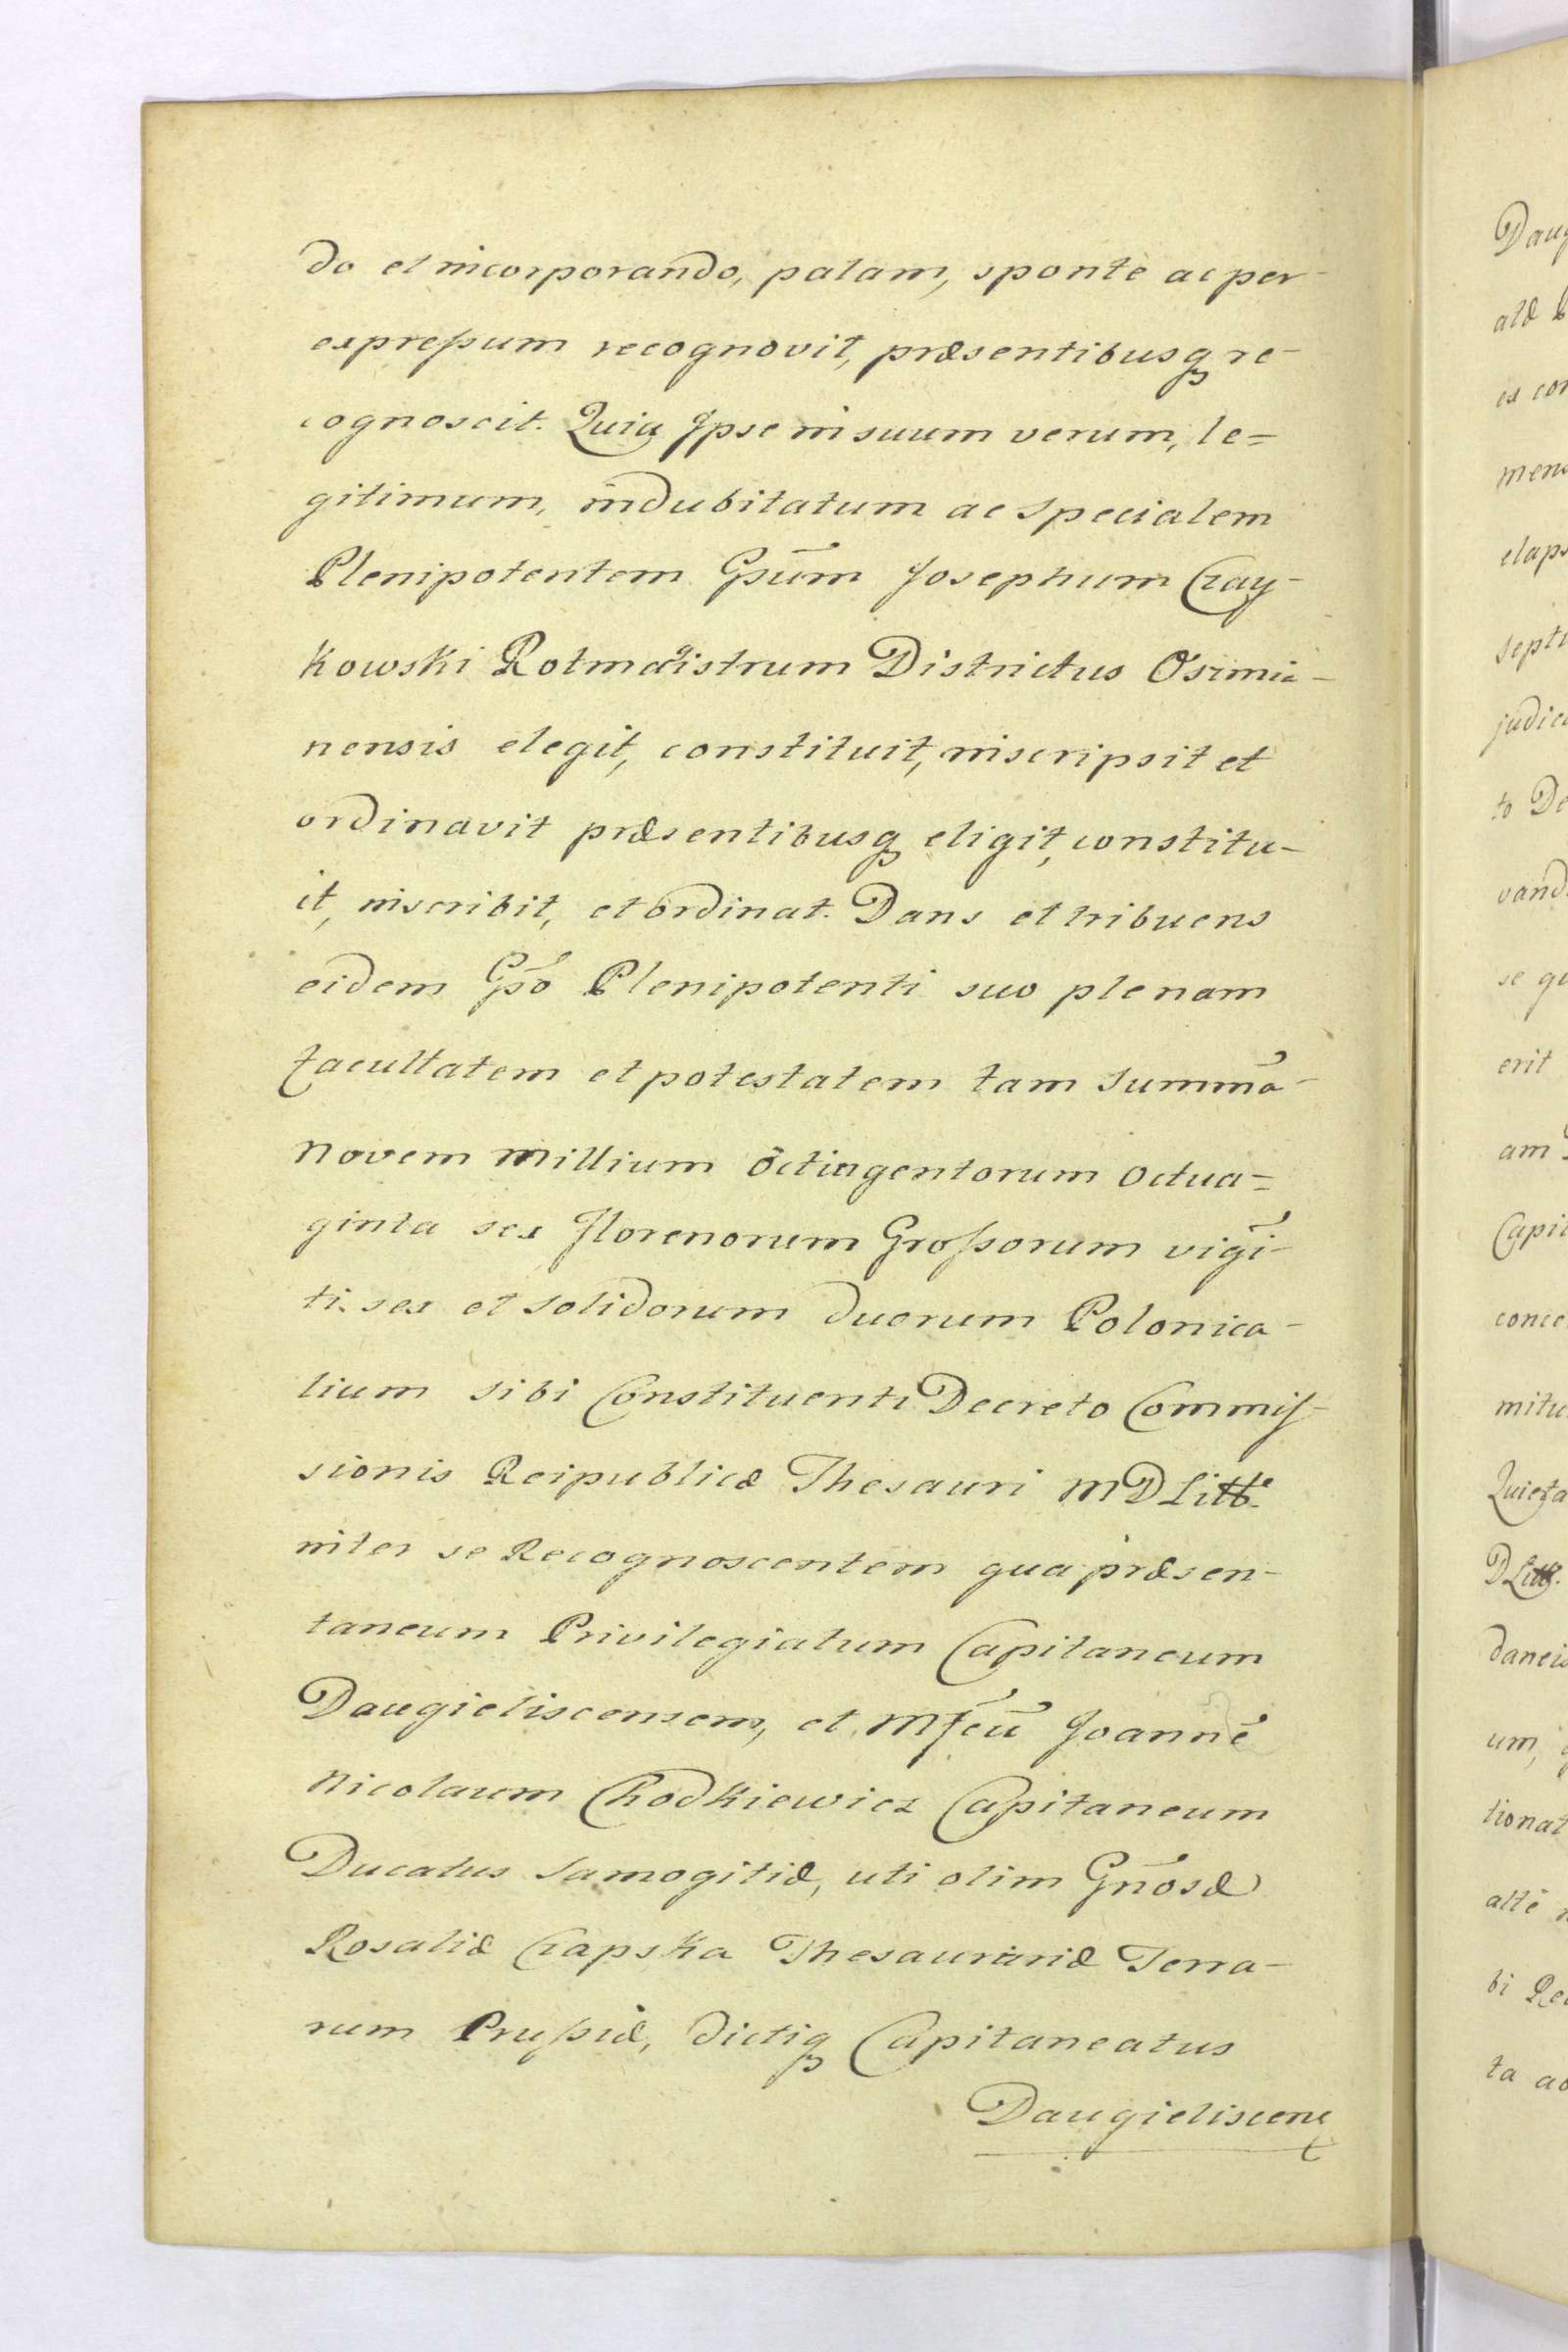 do et incorporando, palam, sponte ac per-
expressum recognovit, præsentibusq re-
cognoscit. Quia Ipse in suum verum, le=
gitimum, indubitatum ac specialem
Plenipotentem Gsūm Josephum Czay-
kowski Rotmagistrum Districtus Oszmia-
nensis elegit, constituit, inscripsit et
ordinavit præsentibusq eligit, constitu-
it, inscribit, et ordinat. Dans et tribuens
eidem Gsō Plenipotenti suo plenam
facultatem et potestatem tam summā
Novem Millium Octingentorum Octua=
ginta sex Florenorum Grossorum vigī-
ti sex et solidorum duorum Polonica-
lium sibi Constituenti Decreto Commis-
sionis Reipublicæ Thesauri M D Litt.
inter se Recognoscentem qua præsen-
taneum Privilegiatum Capitaneum
Daugieliscensem, et Mfcū Joannē
Nicolaum Chodkiewicz Capitaneum
Ducatus Samogitiæ, uti olim Gnōsæ
Rosaliæ Czapska Thesaurariæ Terra-
rum Prussiæ, dictiq Capitaneatus
Daugieliscens
Daug
atæ
ex con
mens
elaps
septi
judica
to De
vand
se qu
erit
am
Capit
conce
mitu
Quieta
D Litt.
daneis
um,
tionat
alte
bi Re
ta ad